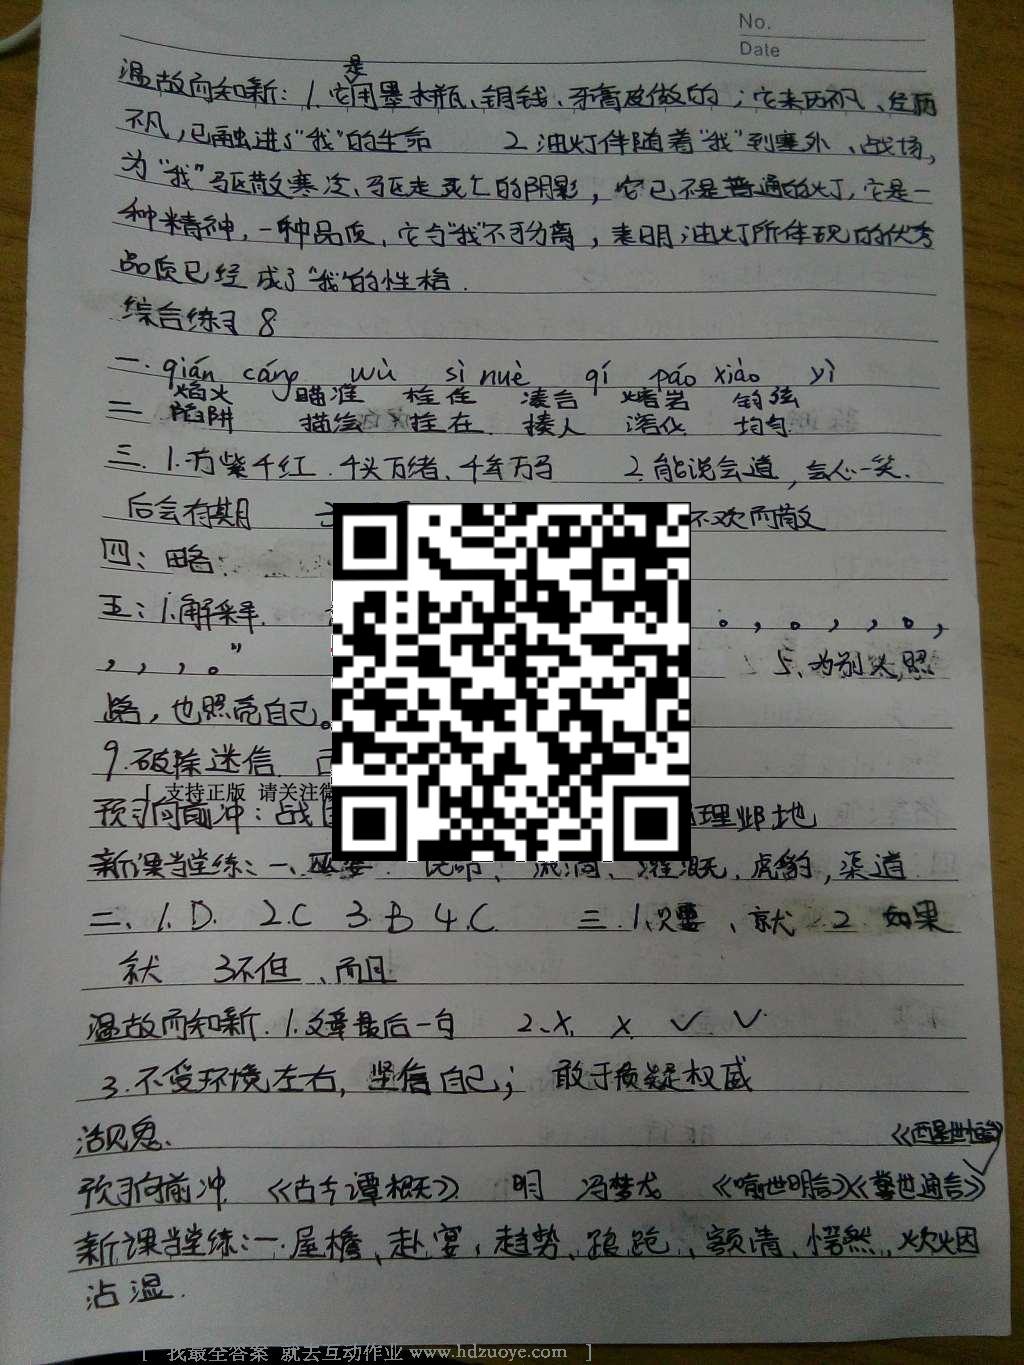 No.
Date
温故而知新：1.它是用墨水瓶、铜钱、牙膏皮做的；它来历不凡、经历
不凡，已融进了“我”的生命 2.油灯伴随着“我”到塞外、战场，
为“我”驱散寒冷、驱走死亡的阴影，它已不是普通的灯，它是一
种精神，一种品质，它与“我”不可分离，表明油灯所体现的优秀
品质已经成了“我”的性格.
综合练习 8
一. qián cáng wù sì nuè qí páo xiào yì
二 焰火 瞄准 拴住 凑合 熔岩 钓弦
陷阱 描绘 拴在 揍人 溶化 均匀.
三. 1.万紫千红.千头万绪、千军万马 2.能说会道，会心一笑.
后会有期 不欢而散
四：略.
五：1.解释. 。，。，，。，
，，，。” 5、为别人照
路，也照亮自己。
9.破除迷信.
[ 支持正版 请关注微
预习向前冲：战 理邺地
新课当堂练：一、巫婆. 灌溉、虎豹，渠道.
二、1.D. 2.C 3.B 4.C. 三.1.只要、就 2.如果
就 3不但、而且
温故而知新.1.文章最后一句 2.X. X ✓ ✓
3.不受环境左右，坚信自己；敢于质疑权威
活见鬼.
《醒世恒言》
预习向前冲 《古今谭概》. 明 冯梦龙 《喻世明言》《警世通言》
新课当堂练：一.屋檐、赴宴，趁势、跑、额清，愕然、炊烟
沾湿.
[ 我最全答案 就去互动作业 www.hdzuoye.com ]